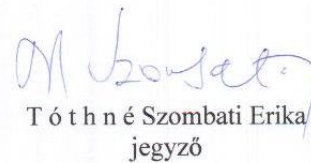 T ó t h n é Szombati Erika
jegyző